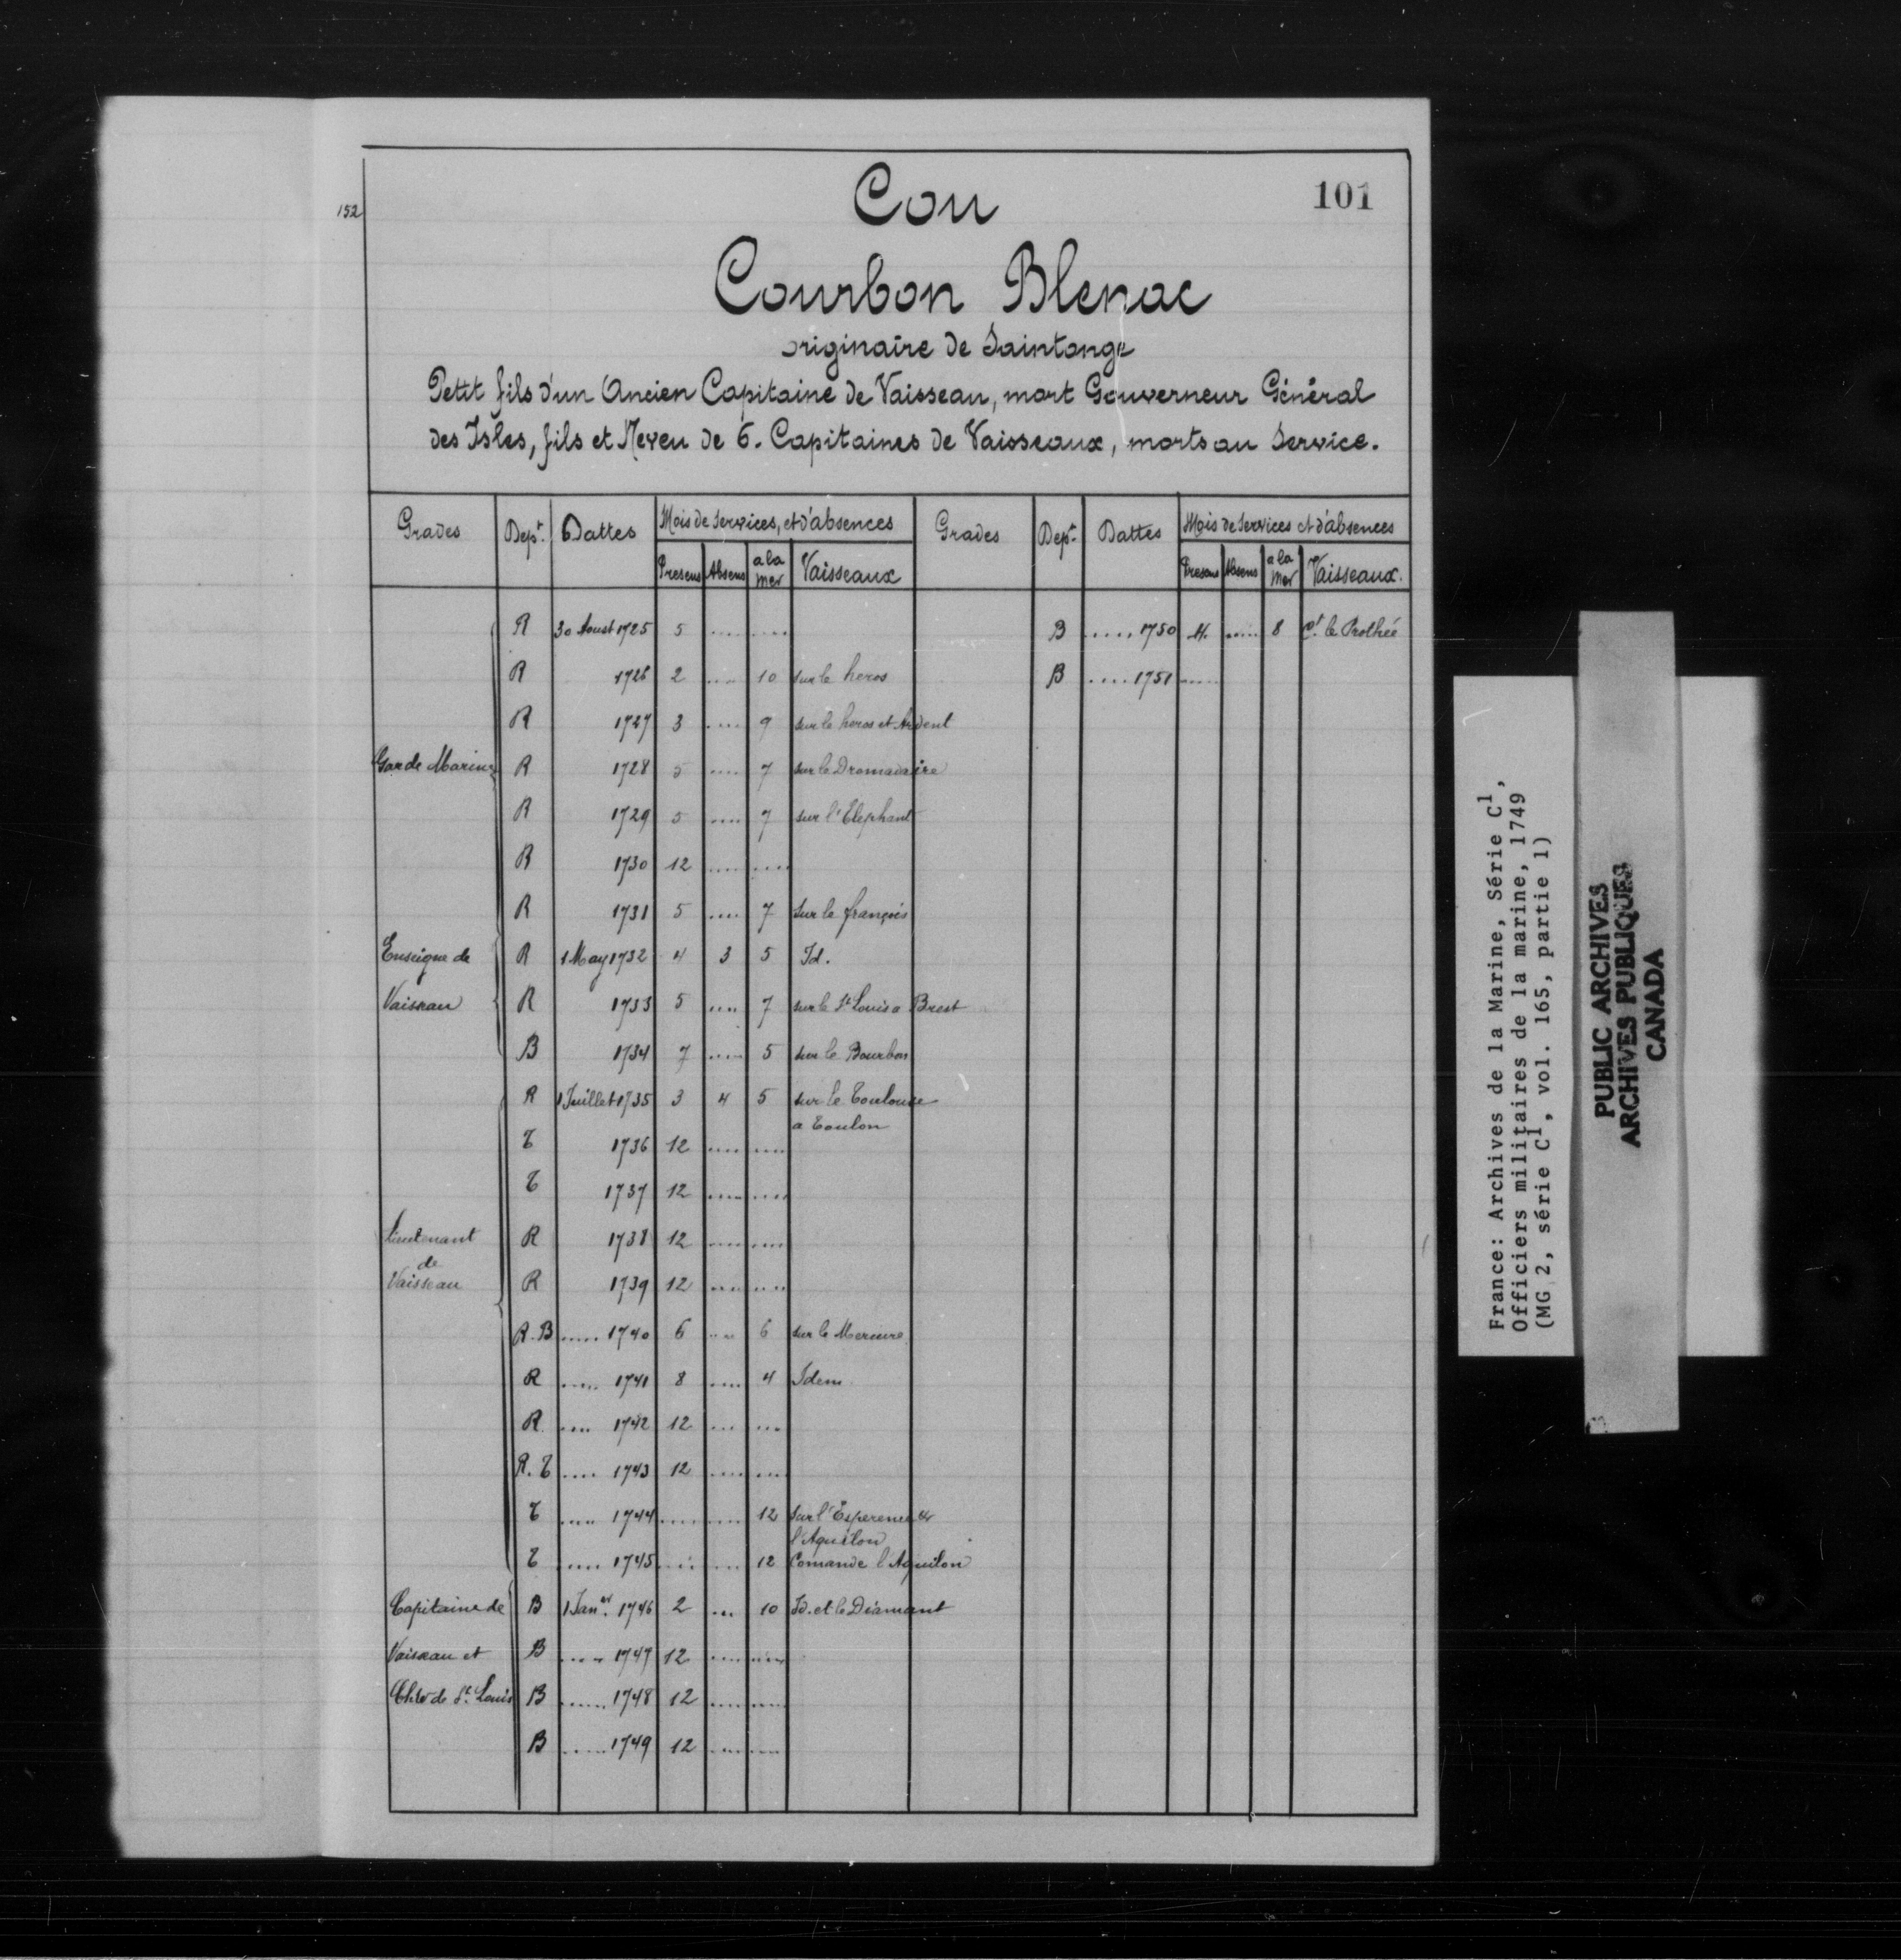 152
101
Cou
Courbon Blenac
originaire de Saintonge
Petit fils d'un Ancien Capitaine de Vaisseau, mort Gouverneur Général
des Isles, fils et Neveu de 6. Capitaines de Vaisseaux, morts au Service.
Grades Dept. Dattes Mois de Services, et d'absences Grades Dept. Dattes Mois de Services et d'absences
Presens Absens a la mer Vaisseaux Presens Absens a la mer Vaisseaux.
R 30 Aoust 1725 5 .... .... B ..... 1750 4. ..... 8 Ct. le Prothée
R 1726 2 .... 10 sur le heros B ..... 1751 .....
R 1727 3 .... 9 sur le heros et Ardent
Garde Marine R 1728 5 .... 7 sur le Dromadaire
R 1729 5 .... 7 sur l'Elephant
R 1730 12 .... ....
R 1731 5 .... 7 Sur le françois
Enseigne de R 1 May 1732 4 3 5 Id.
Vaisseau R 1733 5 .... 7 sur le St Louis a Brest
B 1734 7 .... 5 sur le Bourbon
R 1 Juillet 1735 3 4 5 sur le Toulouse
a Toulon
T 1736 12 .... ....
T 1737 12 .... ....
Lieutenant R 1738 12 .... ....
de
Vaisseau R 1739 12 .... ....
R. B ..... 1740 6 .... 6 sur le Mercure
R ..... 1741 8 .... 4 Idem
R .... 1742 12 ... ...
R. T .... 1743 12 .... ....
T ..... 1744 .... .... 12 Sur l'Esperence &
l'Aquilon
T ..... 1745 .... .... 12 Comande l'Aquilon
Capitaine de B 1 Janer. 1746 2 ... 10 Id. et le Diamant
Vaisseau et B ..... 1747 12 .... ....
Chler de St. Louis B ...... 1748 12 .... ....
B ...... 1749 12 .... ....
France: Archives de la Marine, Série C1,
Officiers militaires de la marine, 1749
(MG 2, série C1, vol. 165, partie 1)
PUBLIC ARCHIVES
ARCHIVES PUBLIQUES
CANADA